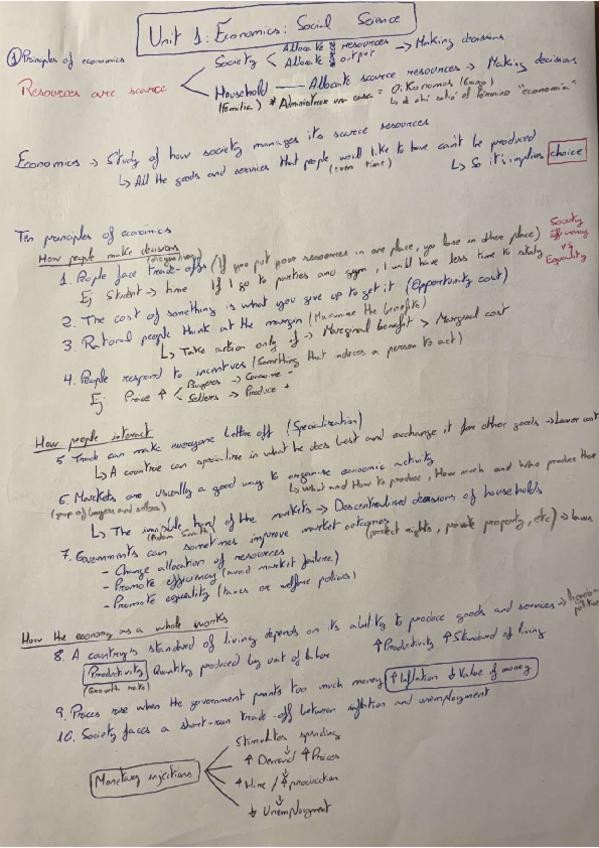 Unit 1: Economics: Social Science
① Principles of economics
Resources are scarce
Society < Allocate resources → Making decisions
Allocate output
Household — Allocate scarce resources → Making decisions
(familia) * Administrar una casa =
Economics → Study of how society manages its scarce resources
↳ All the goods and services that people would like to have can't be produced
(even time) ↳ So it's implies choice
Ten principles of economics
How people make decisions
Society
Efficiency
vs
Equality
1. People face trade-offs (If you put your resources in one place, you lose in other place)
Ej Student → time If I go to parties and gym, I will have less time to study
2. The cost of something is what you give up to get it (Opportunity cost)
3. Rational people think at the margin (Maximize the benefits)
↳ Take action only if → Marginal benefit > Marginal cost
4. People respond to incentives (Something that induces a person to act)
Ej: Price ↑ < Buyers → Consume -
Sellers → Produce +
How people interact
5. Trade can make everyone better off (Specialization)
↳ A countrie can specialize in what he does best and exchange it for other goods → Lower cost
6. Markets are usually a good way to organise economic activity
(group of buyers and sellers) ↳ What and How to produce, How much and Who produce them
↳ The invisible hand of the markets → Descentralised decisions of households
(Adam Smith)
7. Governments can sometimes improve market outcomes (protect rights, private property, etc) → laws
- Change allocation of resources
- Promote efficiency (avoid market failure)
- Promote equality (taxes or welfare policies)
How the economy as a whole works
8. A country's standard of living depends on its ability to produce goods and services →
Productivity Quantity produced by unit of labor ↑ Productivity ↑ Standard of living
(Growth rate)
9. Prices rise when the government prints too much money ↑ Inflation ↓ Value of money
10. Society faces a short-run trade-off between inflation and unemployment
Monetary injections
Stimulates spending
↑ Demand / ↑ Prices
↑ Hire / ↑ production
↓ Unemployment